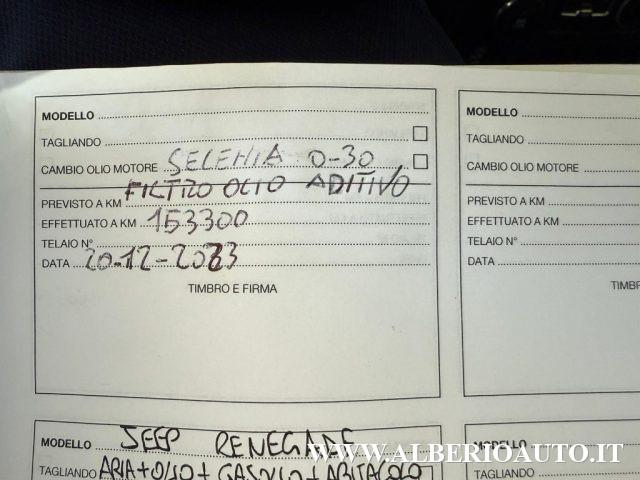 MODELLO
TAGLIANDO
CAMBIO OLIO MOTORE SELEHIA 0-30
FILTRO OLIO ADITIVO
PREVISTO A KM
EFFETTUATO A KM 153300
TELAIO N°
DATA 20-12-2023
TIMBRO E FIRMA
MODELLO
TAGLIANDO
CAMBIO OLIO MOTORE
PREVISTO A KM
EFFETTUATO A KM
TELAIO N°
DATA
TIMBR
MODELLO JEEP RENEGADE
TAGLIANDO ARIA+OLIO+GASOLIO+ABITACOLO
MODELLO
TAGLIANDO
WWW.ALBERIOAUTO.IT